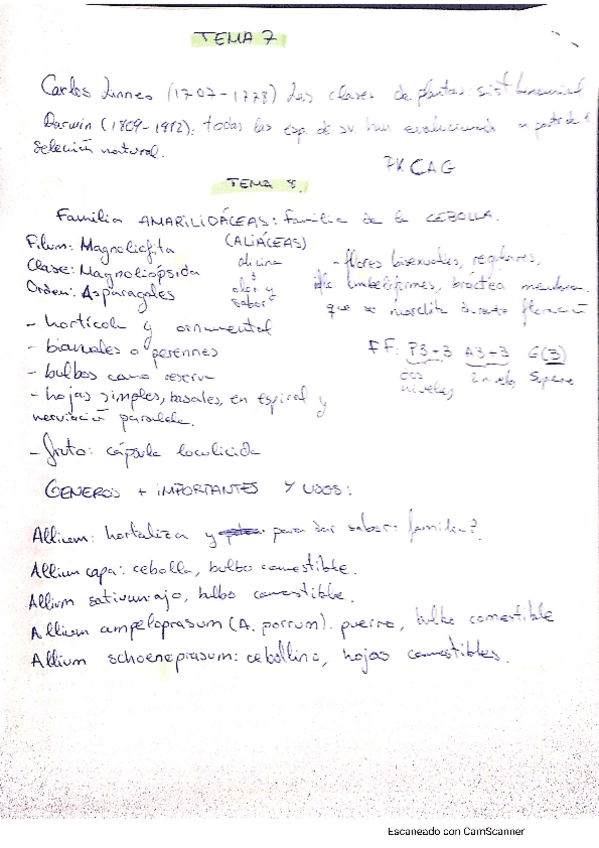 TEMA 7
Carlos Linneo (1707-1778) Las clases de plantas. sist binomial
Darwin (1809-1982): todas las esp. de sv han evolucionado a partir de
selección natural.
PKCAG
TEMA 8.
Familia AMARILIDÁCEAS: familia de la CEBOLLA.
Filum: Magnoliofita
(ALIÁCEAS)
Clase: Magnoliopsida
Orden: Asparagales
alicina
olor y
sabor
- flores bisexuales, regulares,
umbeliformes, bráctea membran.
que se marchita durante floración
- hortícola y ornamental
- bianuales o perennes
- bulbos como reserva
- hojas simples, basales, en espiral y
nerviación paralela.
- fruto: cápsula loculicida
FF: P3-3 A3-3 G(3)
dos niveles, 2 nivels, Supero
GENEROS + IMPORTANTES Y USOS:
Allium: hortaliza y para dar sabor familia?
Allium capa: cebolla, bulbo comestible.
Allium sativum: ajo, bulbo comestible.
Allium ampeloprasum (A. porrum). puerro, bulbo comestible
Allium schoeneprasum: cebollino, hojas comestibles.
Escaneado con CamScanner